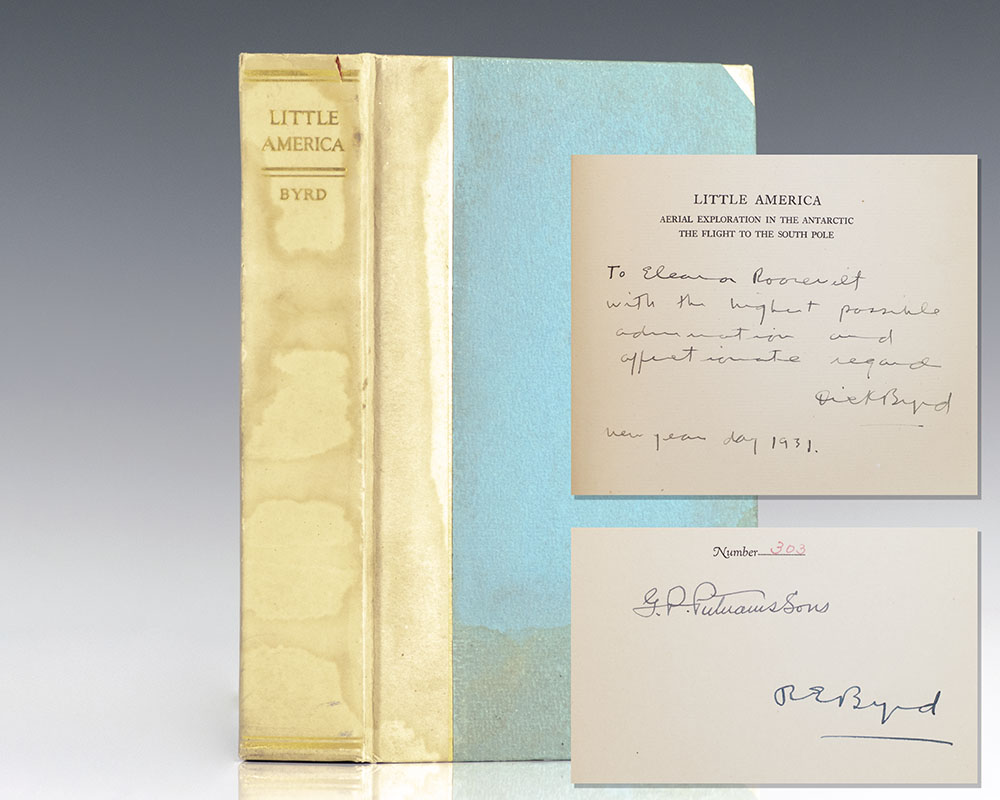 LITTLE
AMERICA
BYRD
LITTLE AMERICA
AERIAL EXPLORATION IN THE ANTARCTIC
THE FLIGHT TO THE SOUTH POLE
To Eleanor Roosevelt
with the highest possible
admiration and
affectionate regard
Dick Byrd
new years day 1931.
Number 303
G. P. Putnams Sons
R E Byrd